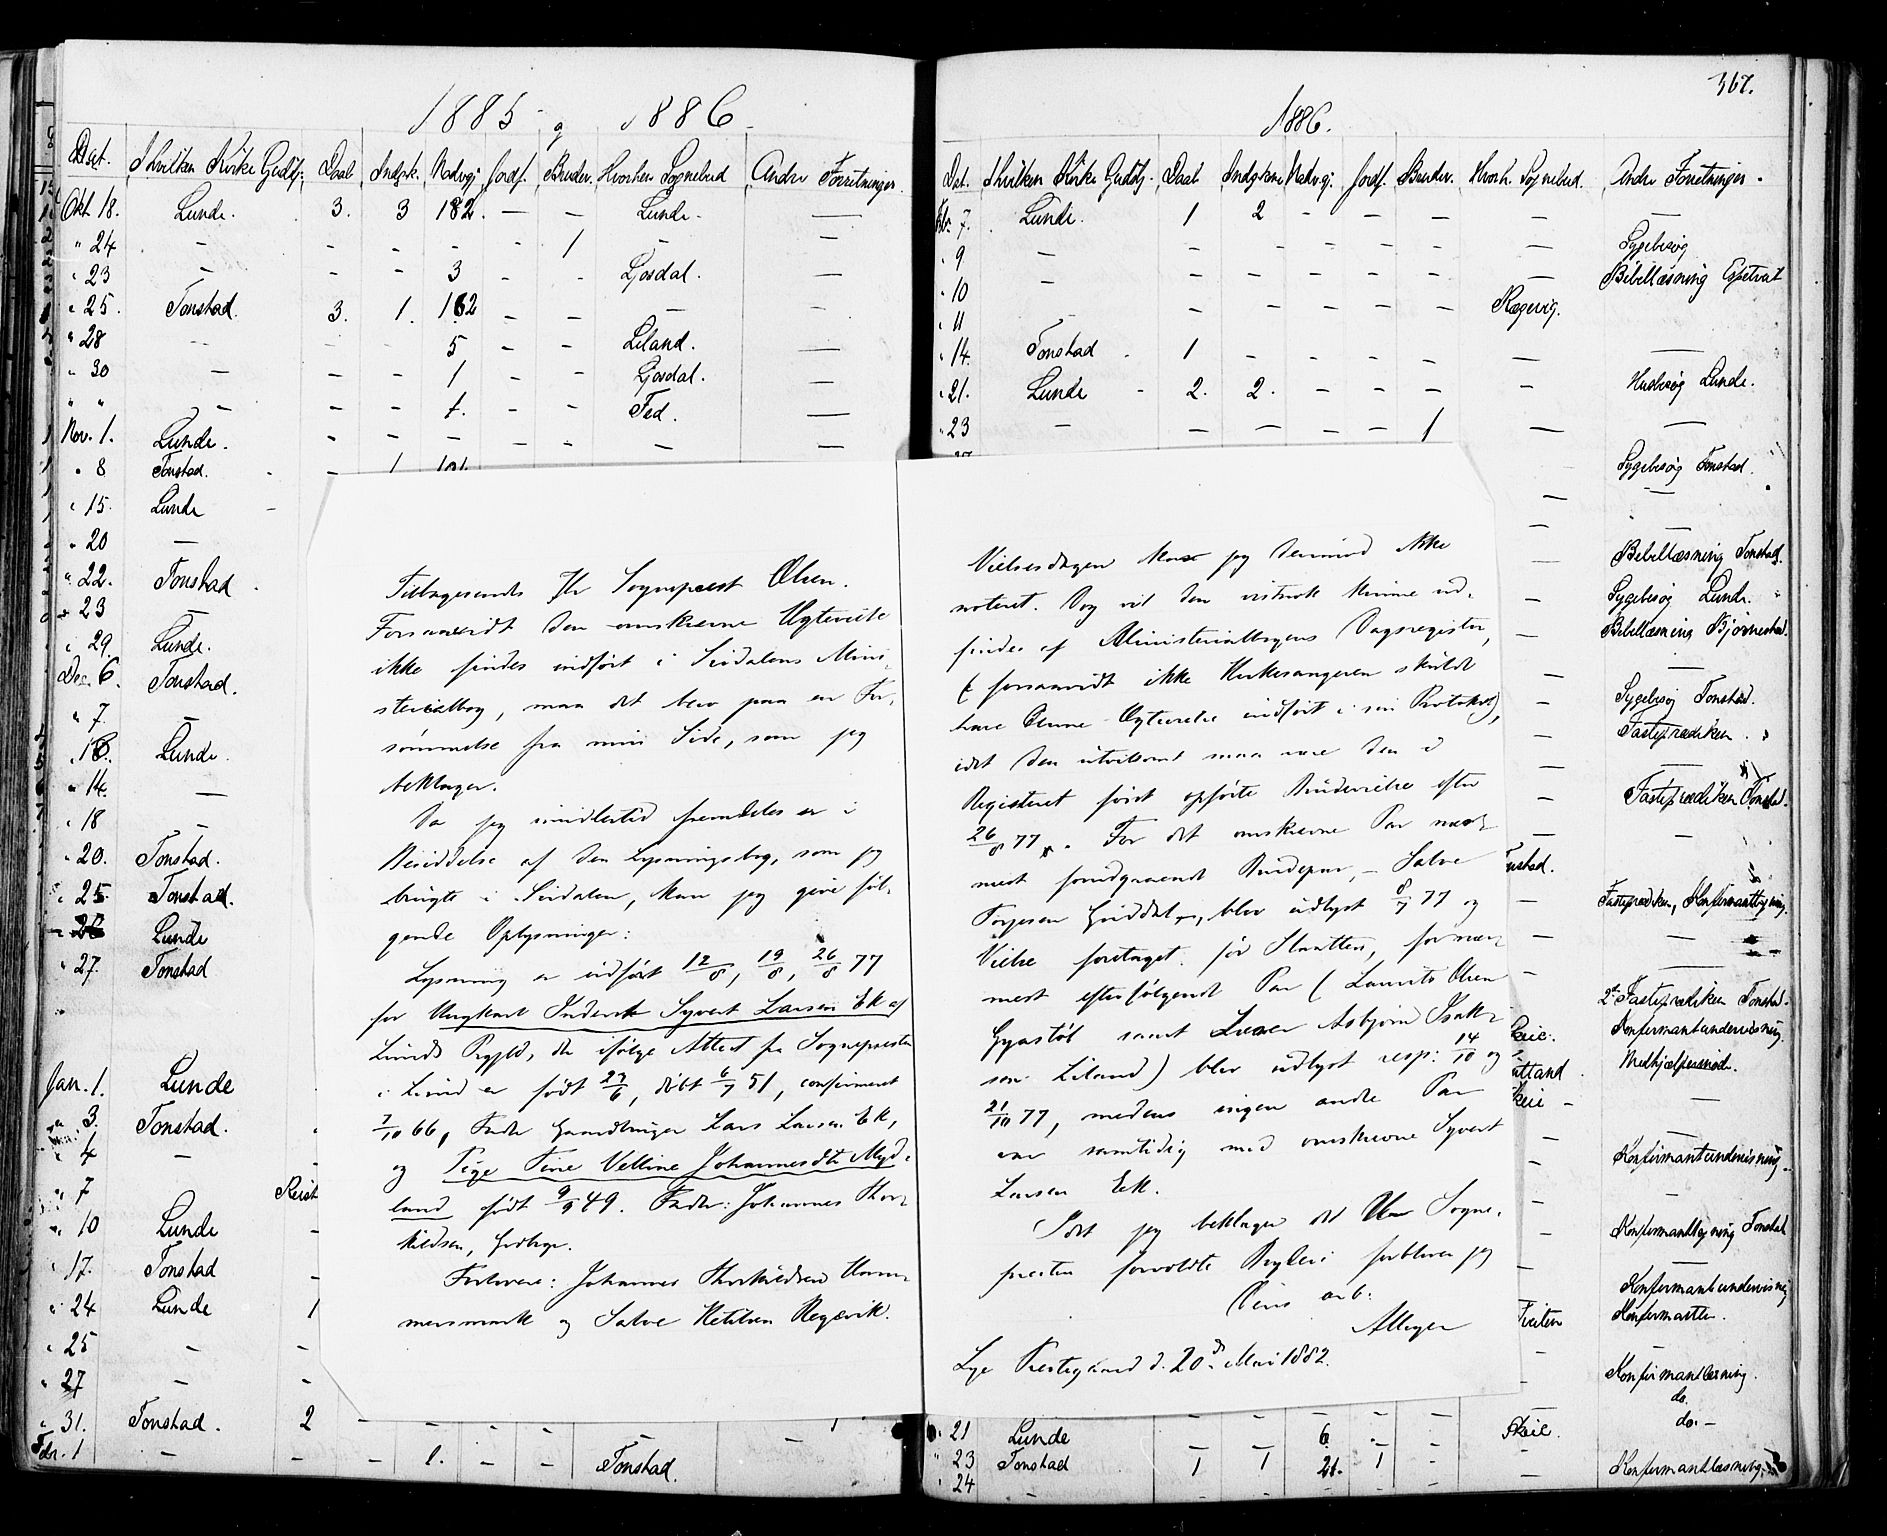 1885 og 1886.
Dat. I hvilken Kirke Gudstj. Daab Indsk. Nadvg. Jordf. Brudev. Hvorhen Sognebud Andre Forretninger.
Okt 18. Lunde. 3. 3 182. — — Lunde. —
" 24 — — — — — 1 — —
" 23 — — — 3 — — Ljosdal. —
" 25. Tonstad. 3. 1. 162 — — — —
" 28 — — — 5 — — Liland. —
" 30 — — — 1 — — Ljosdal. —
" " — — — 1. — — Fed. —
Nov. 1. Lunde. — — — — — — —
" 8 Tonstad. — 1 101
" 15. Lunde —
" 20 —
" 22. Tonstad
" 23 —
" 29. Lunde.
Dec. 6. Tonstad.
" 7. —
" 13. Lunde.
" 14. —
" 18 —
" 20. Tonstad.
" 25 Tonstad.
" 26 Lunde
" 27. Tonstad
Jan. 1. Lunde
" 3. Tonstad.
" 4 —
" 7
" 10 Lunde —
" 17. Tonstad —
" 24 Lunde 1
" 25 — —
" 27 — —
" 31. Tonstad. 2 — — — — — — 1
Febr. 1 — — — 1. — — Tonstad. —
Tilbagesendes Hr Sognepræst Olsen.
Forsaavidt den omskrevne Ægtevielse
ikke findes indført i Sirdalens Mini-
sterialbog, maa det bero paa en For-
sømmelse fra min Side, som jeg
beklager.
Da jeg imidlertid fremdeles er i
Besiddelse af den Lysningsbog, som jeg
brugte i Sirdalen, kan jeg give føl-
gende Oplysninger:
Lysning er indført 12/8, 19/8, 26/8 77
for Ungkarl Inderst Syvert Larsen Ek af
Lunds Prgjld, der ifølge Attest fra Sognepresten
i Lund er født 27/6, døbt 6/7 51, confirmeret
7/10 66, Fader Gaardbruger Lars Larsen Ek,
og Pige Tine Velline Johannesdtr Myd-
land født 9/9 49. Fader: Johannes Thor-
kildsen,
Forlovere: Johannes Thorkildsen Ham-
mersmark og Salve Ketilsen Regevik.
367.
1886.
Dat. I hvilken Kirke Gudstj. Daab Indgskne Nadvg. Jordf. Brudev. Hvorh. Sognebud. Andre Forretninger.
Febr. 7. Lunde. 1 2 — — — — —
" 9 — — — — — — — Sygebesøg
" 10 — — — — — — — Bibellæsning
" 11 — — — — — Regevig.
" 14. Tonstad 1 — — — — — —
" 21. Lunde 2. 2. — — — — Husbesøg Lunde.
" 23 — 1 — —
— Sygebesøg Tonstad.
— —
— —
— Bibellæsning Tonstad.
— Sygebesøg Lunde.
— Bibellæsning Bjørnestad.
— —
— Sygebesøg Tonstad.
— Fasteprædiken.
— —
— Fasteprædiken Tonstad.
— —
— Fasteprædiken, Konfirmantlæsning.
— —
— —
2 Fasteprædiken Tonstad.
Konfirmantundervisning.
Medhjælpermøde.
—
— Konfirmantundervisning.
— —
— Konfirmantlæsning Tonstad
— —
Konfirmantundervisning
Konfirmation.
— —
— Konfirmantlæsning.
do.
do. —
Vielsesdagen har jeg derimod ikke
noteret. Dog vil den vistnok kunne ud-
findes af Ministerialbogens Dagsregister,
(forsaavidt ikke Kirkesangeren skulde
have denne Ægtevielse indført i sin Protokol),
idet den utvivlsomt maa være den i
Registeret først opførte Brudevielse efter
26/8 77. For det omskrevne Par nær-
mest foregaaende Brudepar, — Salve
Torjesen, blev udlyst 8/7 77 og
Vielse foretaget før Slaatten, for nær-
mest efterfølgende Par (Laurits Olsen
Gyastøl samt Asbjørn Isak-
sen Liland) blev udlyst resp: 14/10 og
21/10 77, medens ingen andre Par
var samtidig med omskrevne Syvert
Larsen Ek.
Idet jeg beklager det Hr Sogne-
presten forvoldte Bryderi forbliver jeg
Deres arb.
Lye Prestegaard d. 20de Mai 1882.
" 21 Lunde — — 6. — — Skeie.
" 23 Tonstad 1 1 21. 1 — — Konfirmantlæsning.
" 24 —